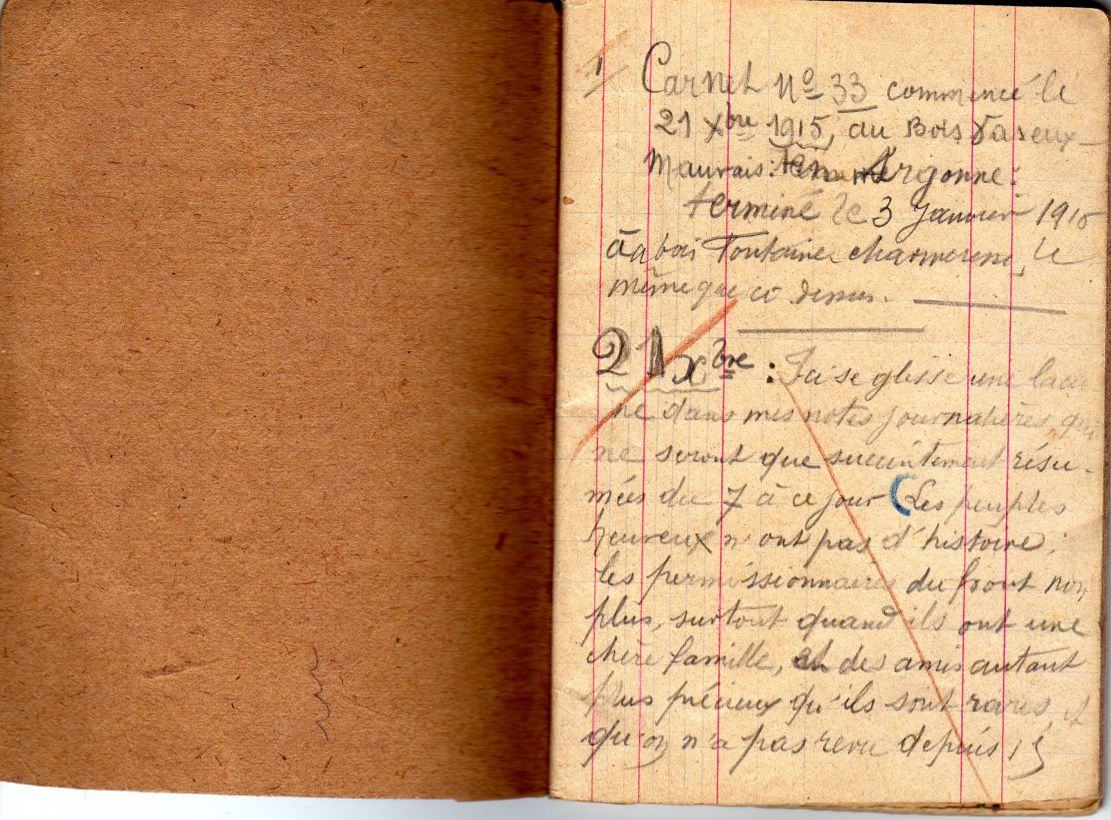 1/ Carnet no 33 commencé le
21 Xbre 1915, au Bois Vaseux-
Mauvais: en Argonne:
terminé le 3 Janvier 1916
au bois Fontaine, le
même que ci dessus.
21 xbre : Ici se glisse une lacu
ne dans mes notes journalières, qui
ne seront que succintement résu-
mées du 7 à ce jour (Les peuples
heureux n'ont pas d'histoire;
les permissionnaires du front non
plus, surtout quand ils ont une
chère famille, et des amis autant
plus précieux qu'ils sont rares, et
qu'on n'a pas revu depuis 15